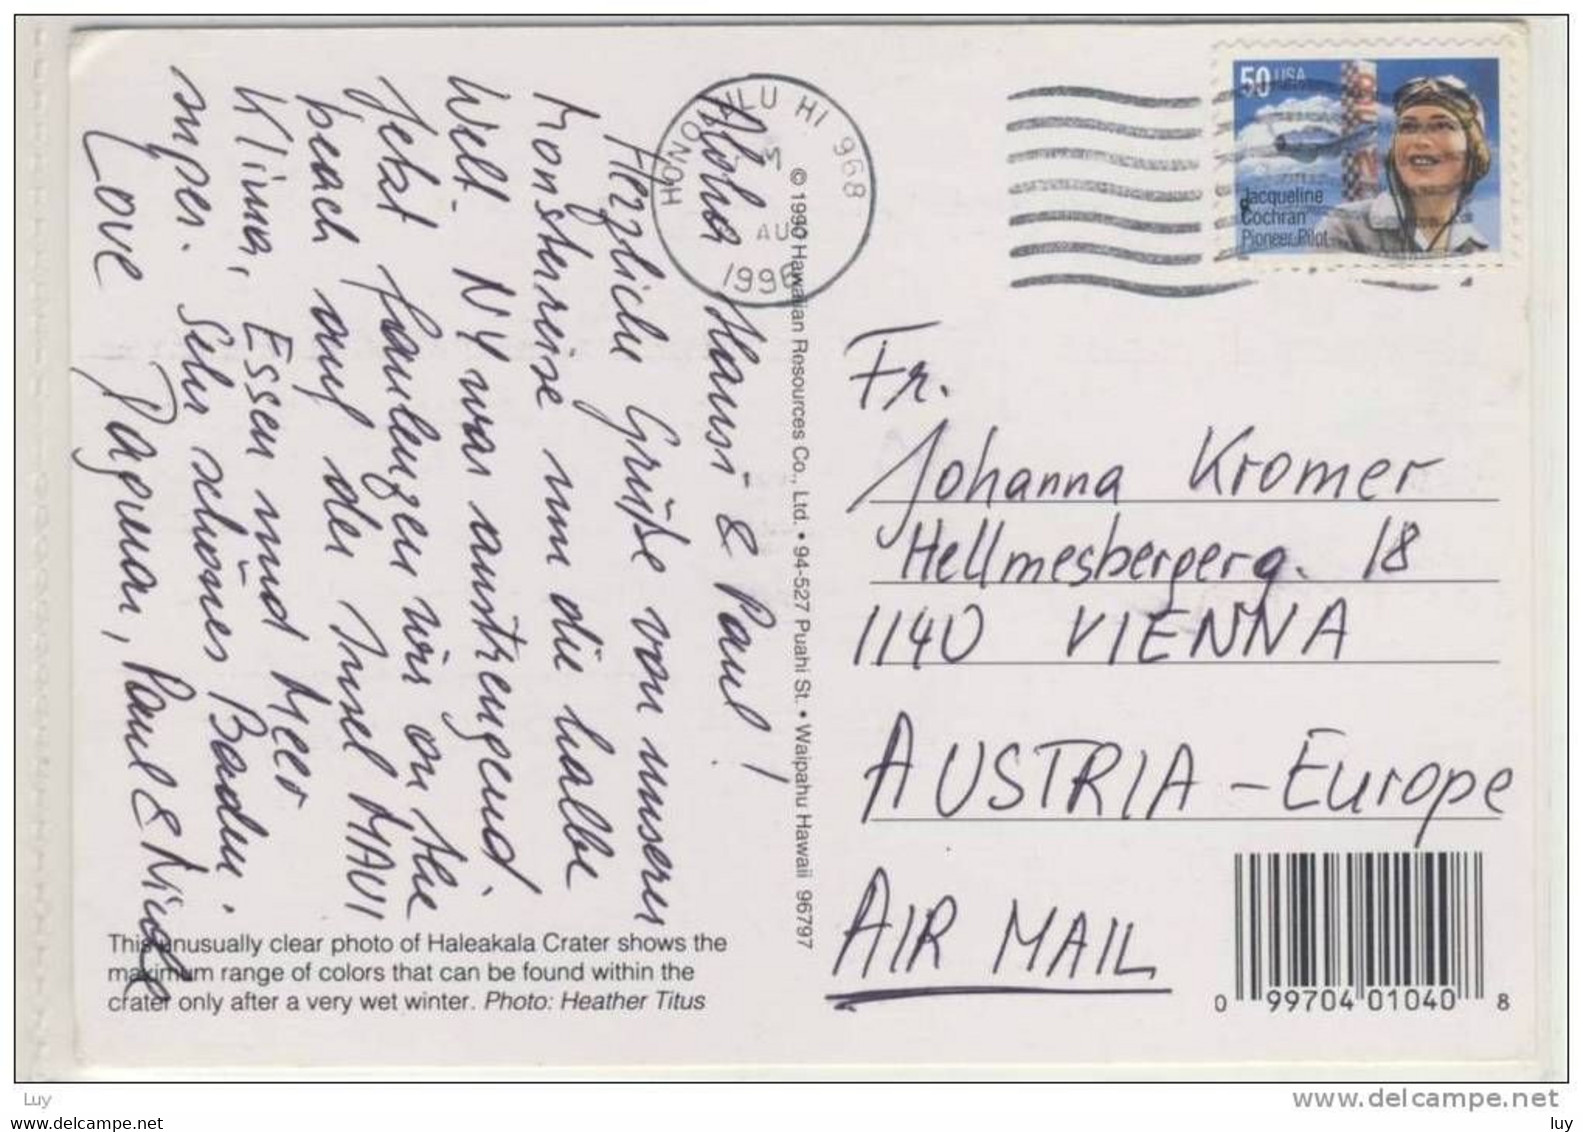 Aloha Hansi & Paul!
Herzliche Grüße von unserer
Monsterreise um die halbe
Welt. NY war anstrengend.
Jetzt faulenzen wir on the
beach auf der Insel MAUI
Klima, Essen und Meer
super. Sehr schönes Baden.
Love Dagmar, Paul & Nicole
This unusually clear photo of Haleakala Crater shows the
maximum range of colors that can be found within the
crater only after a very wet winter. Photo: Heather Titus
© 1990 Hawaiian Resources Co., Ltd. • 94-527 Puahi St. • Waipahu Hawaii 96797
HONOLULU HI 968
AU
1996
50 USA
Jacqueline
Cochran
Pioneer Pilot
Fr.
Johanna Kromer
Hellmesbergerg. 18
1140 VIENNA
AUSTRIA - Europe
AIR MAIL
0 99704 01040 8
Luy
www.delcampe.net
luy www.delcampe.net luy